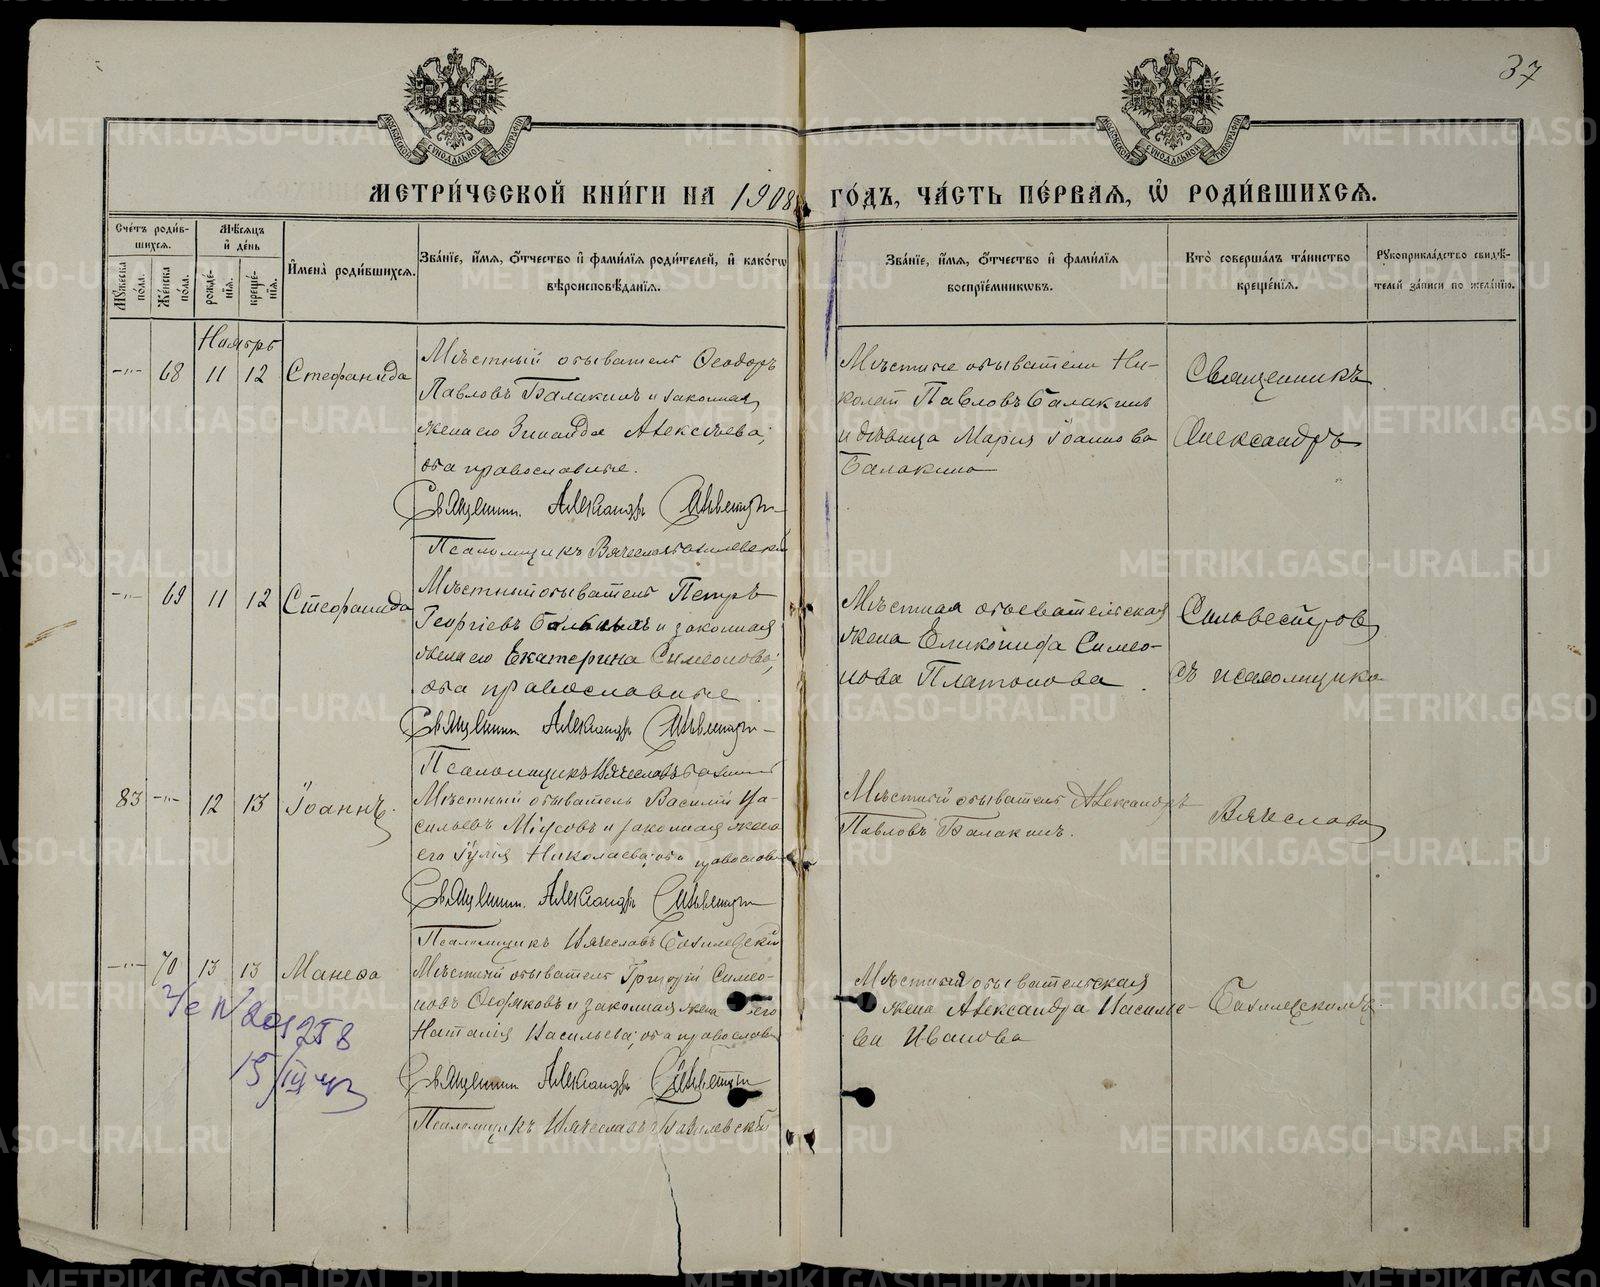 37
МЕТРИ́ЧЕСКОЙ КНИ́ГИ НА 1908 ГО́ДЪ, ЧА́СТЬ ПЕ́РВАЯ, Ѡ РОДИ́ВШИХСЯ.
Сче́тъ роди́в-
шихся.
Мꙋ́жеска по́ла.
Же́нска по́ла.
Мѣ́сяцъ
и де́нь
рожде́-
нїя.
креще́-
нїя.
И҆мена̀ роди́вшихся.
Зва́нїе, и҆́мя, ѻ҆́тчество и҆ фами́лїя роди́телей, и҆ како́гѡ
вѣроисповѣ́данїя.
Зва́нїе, и҆́мя, ѻ҆́тчество и҆ фами́лїя
воспрїе́мникѡвъ.
Кто̀ соверша́лъ та́инство
креще́нїя.
Рꙋкоприкла́дство свидѣ́-
телей за́писи по жела́нїю.
Ноябрь
-"- 68 11 12 Стефанида
Мѣстный обыватель Ѳеодоръ
Павловъ Балакинъ и законная
жена его Зинаида Алексѣева;
оба православные.
Священникъ Александръ Сильвестровъ
Псаломщикъ Вячеславъ
Мѣстные обыватели Ни-
колай Павловъ Балакинъ
и дѣвица Марія Іоаннова
Балакина
Священникъ
Александръ
-"- 69 11 12 Стефанида
Мѣстный обыватель Петръ
Георгіевъ и законная
жена его Екатерина Симеонова;
оба православные
Священникъ Александръ Сильвестровъ
Псаломщикъ Вячеславъ
Мѣстная обывательская
жена Еликонида Симео-
нова Платонова
Сильвестровъ
съ псаломщико
83 -"- 12 13 Іоаннъ.
Мѣстный обыватель Василій Ва-
сильевъ Міусовъ и законная жена
его Іулія Николаева; оба православ
Священникъ Александръ Сильвестровъ
Псаломщикъ Вячеславъ
Мѣстный обыватель Александръ
Павловъ Балакинъ.
Вячеславо
-"- 70 13 13 Манефа
Мѣстный обыватель Григорій Симео-
новъ и законная жена его
Наталія Васильева; оба православ
Священникъ Александръ Сильвестровъ
Псаломщикъ Вячеславъ
Мѣстная обывательская
жена Александра Василье-
ва Иванова